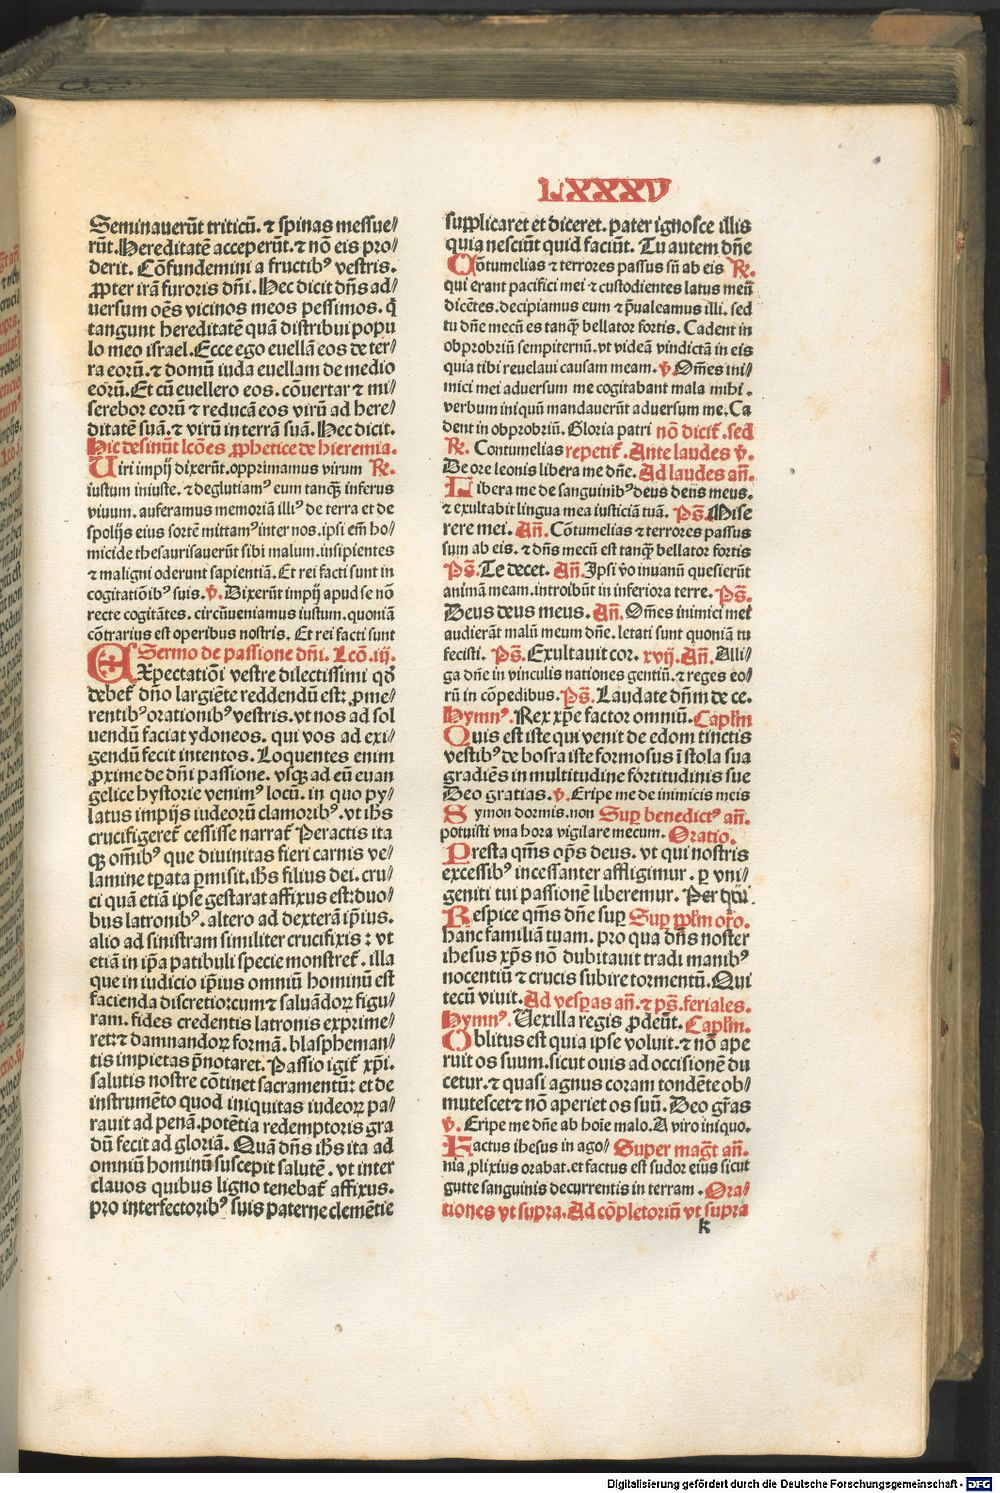 LXXXV
Seminauerūt triticū. ⁊ spinas messue⸗
rūt. Hereditatē acceperūt. ⁊ nō eis pro⸗
derit. Cōfundemini a fructibꝰ vestris.
ꝓpter irā furoris dn̄i. Hec dicit dn̄s ad⸗
uersum oēs vicinos meos pessimos. q̄
tangunt hereditatē quā distribui popu
lo meo israel. Ecce ego euellā eos de ter⸗
ra eorū. ⁊ domū iuda euellam de medio
eorū. Et cū euellero eos. cōuertar ⁊ mi⸗
serebor eorū ⁊ reducā eos virū ad here⸗
ditatē suā. ⁊ virū in terrā suā. Hec dicit.
Hic desinūt lcōes ꝓphetice de hieremia.
Uiri impij dixerūt. opprimamus virum ℟.
iustum iniuste. ⁊ deglutiamꝰ eum tanqͣ inferus
viuum. auferamus memoriā illiꝰ de terra et de
spolijs eius sortē mittamꝰ inter nos. ipsi em̄ ho⸗
micide thesaurisauerūt sibi malum. insipientes
⁊ maligni oderunt sapientiā. Et rei facti sunt in
cogitatiōibꝰ suis. ℣. Dixerūt impij apud se nō
recte cogitātes. circūueniamus iustum. quoniā
cōtrarius est operibus nostris. Et rei facti sunt
Sermo de passione dn̄i. Lcō. iij.
EXpectatiōi vestre dilectissimi qđ
debet̄ dn̄o largiēte reddendū est: ꝓme⸗
rentibꝰ orationibꝰ vestris. vt nos ad sol
uendū faciat ydoneos. qui vos ad exi⸗
gendū fecit intentos. Loquentes enim
ꝓxime de dn̄i passione. vsqꝫ ad eū euan
gelice hystorie venimꝰ locū. in quo py⸗
latus impijs iudeorū clamoribꝰ. vt ih̄s
crucifigeret̄ cessisse narrat̄ Peractis ita
qꝫ om̄ibꝰ que diuinitas fieri carnis ve⸗
lamine tꝑata ꝑmisit. ih̄s filius dei. cru⸗
ci quā etiā ipse gestarat affixus est: duo⸗
bus latronibꝰ. altero ad dexterā ip̄ius.
alio ad sinistram similiter crucifixis: vt
etiā in ip̄a patibuli specie monstret̄. illa
que in iudicio ip̄ius omniū hominū est
facienda discretio: cum ⁊ saluādoꝝ figu⸗
ram. fides credentis latronis exprime⸗
ret: ⁊ damnandoꝝ formā. blaspheman⸗
tis impietas p̄notaret. Passio igit̄ xp̄i.
salutis nostre cōtinet sacramentū: et de
instrumēto quod iniquitas iudeoꝝ pa⸗
rauit ad penā. potētia redemptoris gra
dū fecit ad gloriā. Quā dn̄s ih̄s ita ad
omniū hominū suscepit salutē. vt inter
clauos quibus ligno tenebat̄ affixus.
pro interfectoribꝰ suis paterne clemētie
supplicaret et diceret. pater ignosce illis
quia nesciūt quid faciūt. Tu autem dn̄e
Cōtumelias ⁊ terrores passus sū ab eis ℟.
qui erant pacifici mei ⁊ custodientes latus meū
dicētes. decipiamus eum ⁊ p̄ualeamus illi. sed
tu dn̄e mecū es tanqͣ bellator fortis. Cadent in
obprobriū sempiternū. vt videā vindictā in eis
quia tibi reuelaui causam meam. ℣. Om̄es ini⸗
mici mei aduersum me cogitabant mala mihi.
verbum iniquū mandauerūt aduersum me. Ca
dent in obprobriū. Gloria patri nō dicit̄. sed
℟. Contumelias repetit̄. Ante laudes ℣.
De ore leonis libera me dn̄e. Ad laudes an̄.
Libera me de sanguinibꝰ deus deus meus.
⁊ exultabit lingua mea iusticiā tuā. Ps̄. Mise
rere mei. An̄. Cōtumelias ⁊ terrores passus
sum ab eis. ⁊ dn̄s mecū est tanqͣ bellator fortis
Ps̄. Te decet. An̄. Ipsi vo inuanū quesierūt
animā meam. introibūt in inferiora terre. Ps̄.
Deus deus meus. An̄. Om̄es inimici mei
audierāt malū meum dn̄e. letati sunt quoniā tu
fecisti. Ps̄. Exultauit cor. xvij. An̄. Alli⸗
ga dn̄e in vinculis nationes gentiū. ⁊ reges eo⸗
rū in cōpedibus. Ps̄. Laudate dn̄m de ce.
Hymnꝰ. Rex xp̄e factor omniū. Capl̄m
Quis est iste qui venit de edom tinctis
vestibꝰ de bosra iste formosus ī stola sua
gradiēs in multitudine fortitudinis sue
Deo gratias. ℣. Eripe me de inimicis meis
Symon dormis. non Suꝑ benedictꝰ an̄.
potuisti vna hora vigilare mecum. Oratio.
Presta qm̄s op̄s deus. vt qui nostris
excessibꝰ incessanter affligimur. ꝑ vni⸗
geniti tui passionē liberemur. Per
Respice qm̄s dn̄e suꝑ Suꝑ ppl̄m or̄o.
hanc familiā tuam. pro qua dn̄s noster
ihesus xp̄s nō dubitauit tradi manibꝰ
nocentiū ⁊ crucis subire tormentū. Qui
tecū viuit. Ad vesꝑas an̄. ⁊ ps̄. feriales.
Hymnꝰ. Uexilla regis ꝓdeūt. Capl̄m.
Oblitus est quia ipse voluit. ⁊ nō ape
ruit os suum. sicut ouis ad occisionē du
cetur. ⁊ quasi agnus coram tondēte ob⸗
mutescet ⁊ nō aperiet os suū. Deo gr̄as
℣. Eripe me dn̄e ab hoīe malo. A viro iniquo.
Factus ihesus in ago⸗ Super magt̄ an̄.
nia ꝓlixius orabat. et factus est sudor eius sicut
gutte sanguinis decurrentis in terram. Ora⸗
tiones vt supra. Ad cōpletoriū vt supra
k
Digitalisierung gefördert durch die Deutsche Forschungsgemeinschaft - DFG